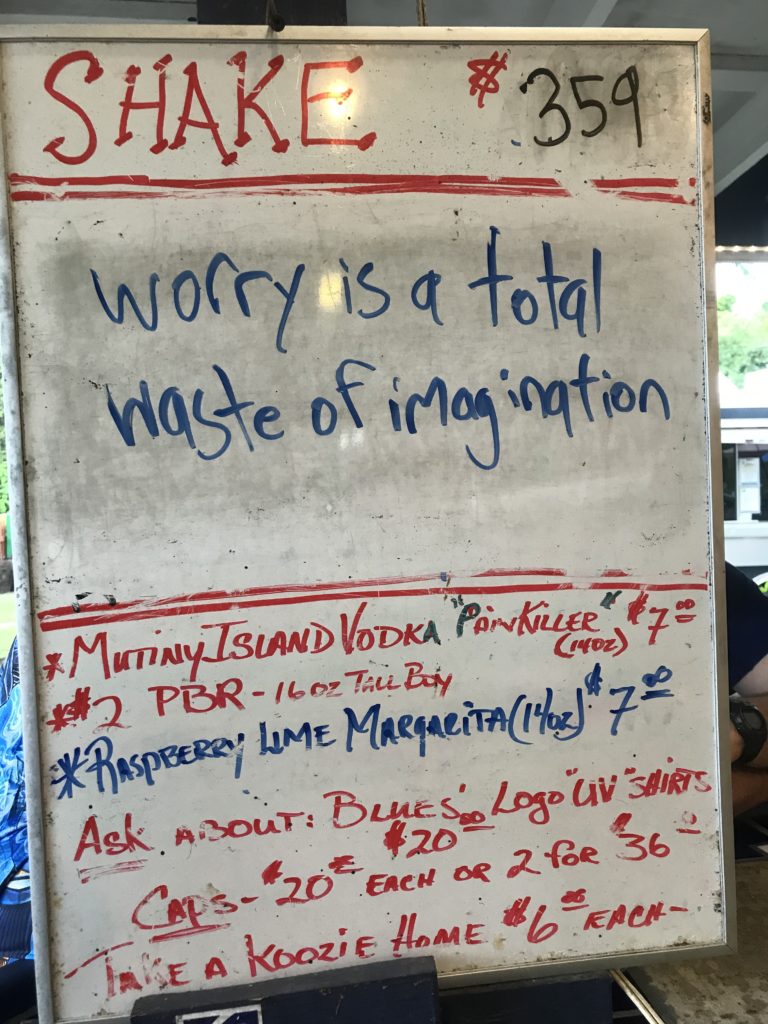 SHAKE $ 359
worry is a total
waste of imagination
*MUTINY ISLAND VODKA "PAINKILLER" $7.00
(14OZ)
*$2 PBR - 16 OZ TALL BOY
*RASPBERRY LIME MARGARITA (14OZ) $7.00
ASK ABOUT: BLUES' LOGO "UV" SHIRTS
$20.00
CAPS - $20 EACH OR 2 FOR $36
TAKE A KOOZIE HOME $6.00 EACH-